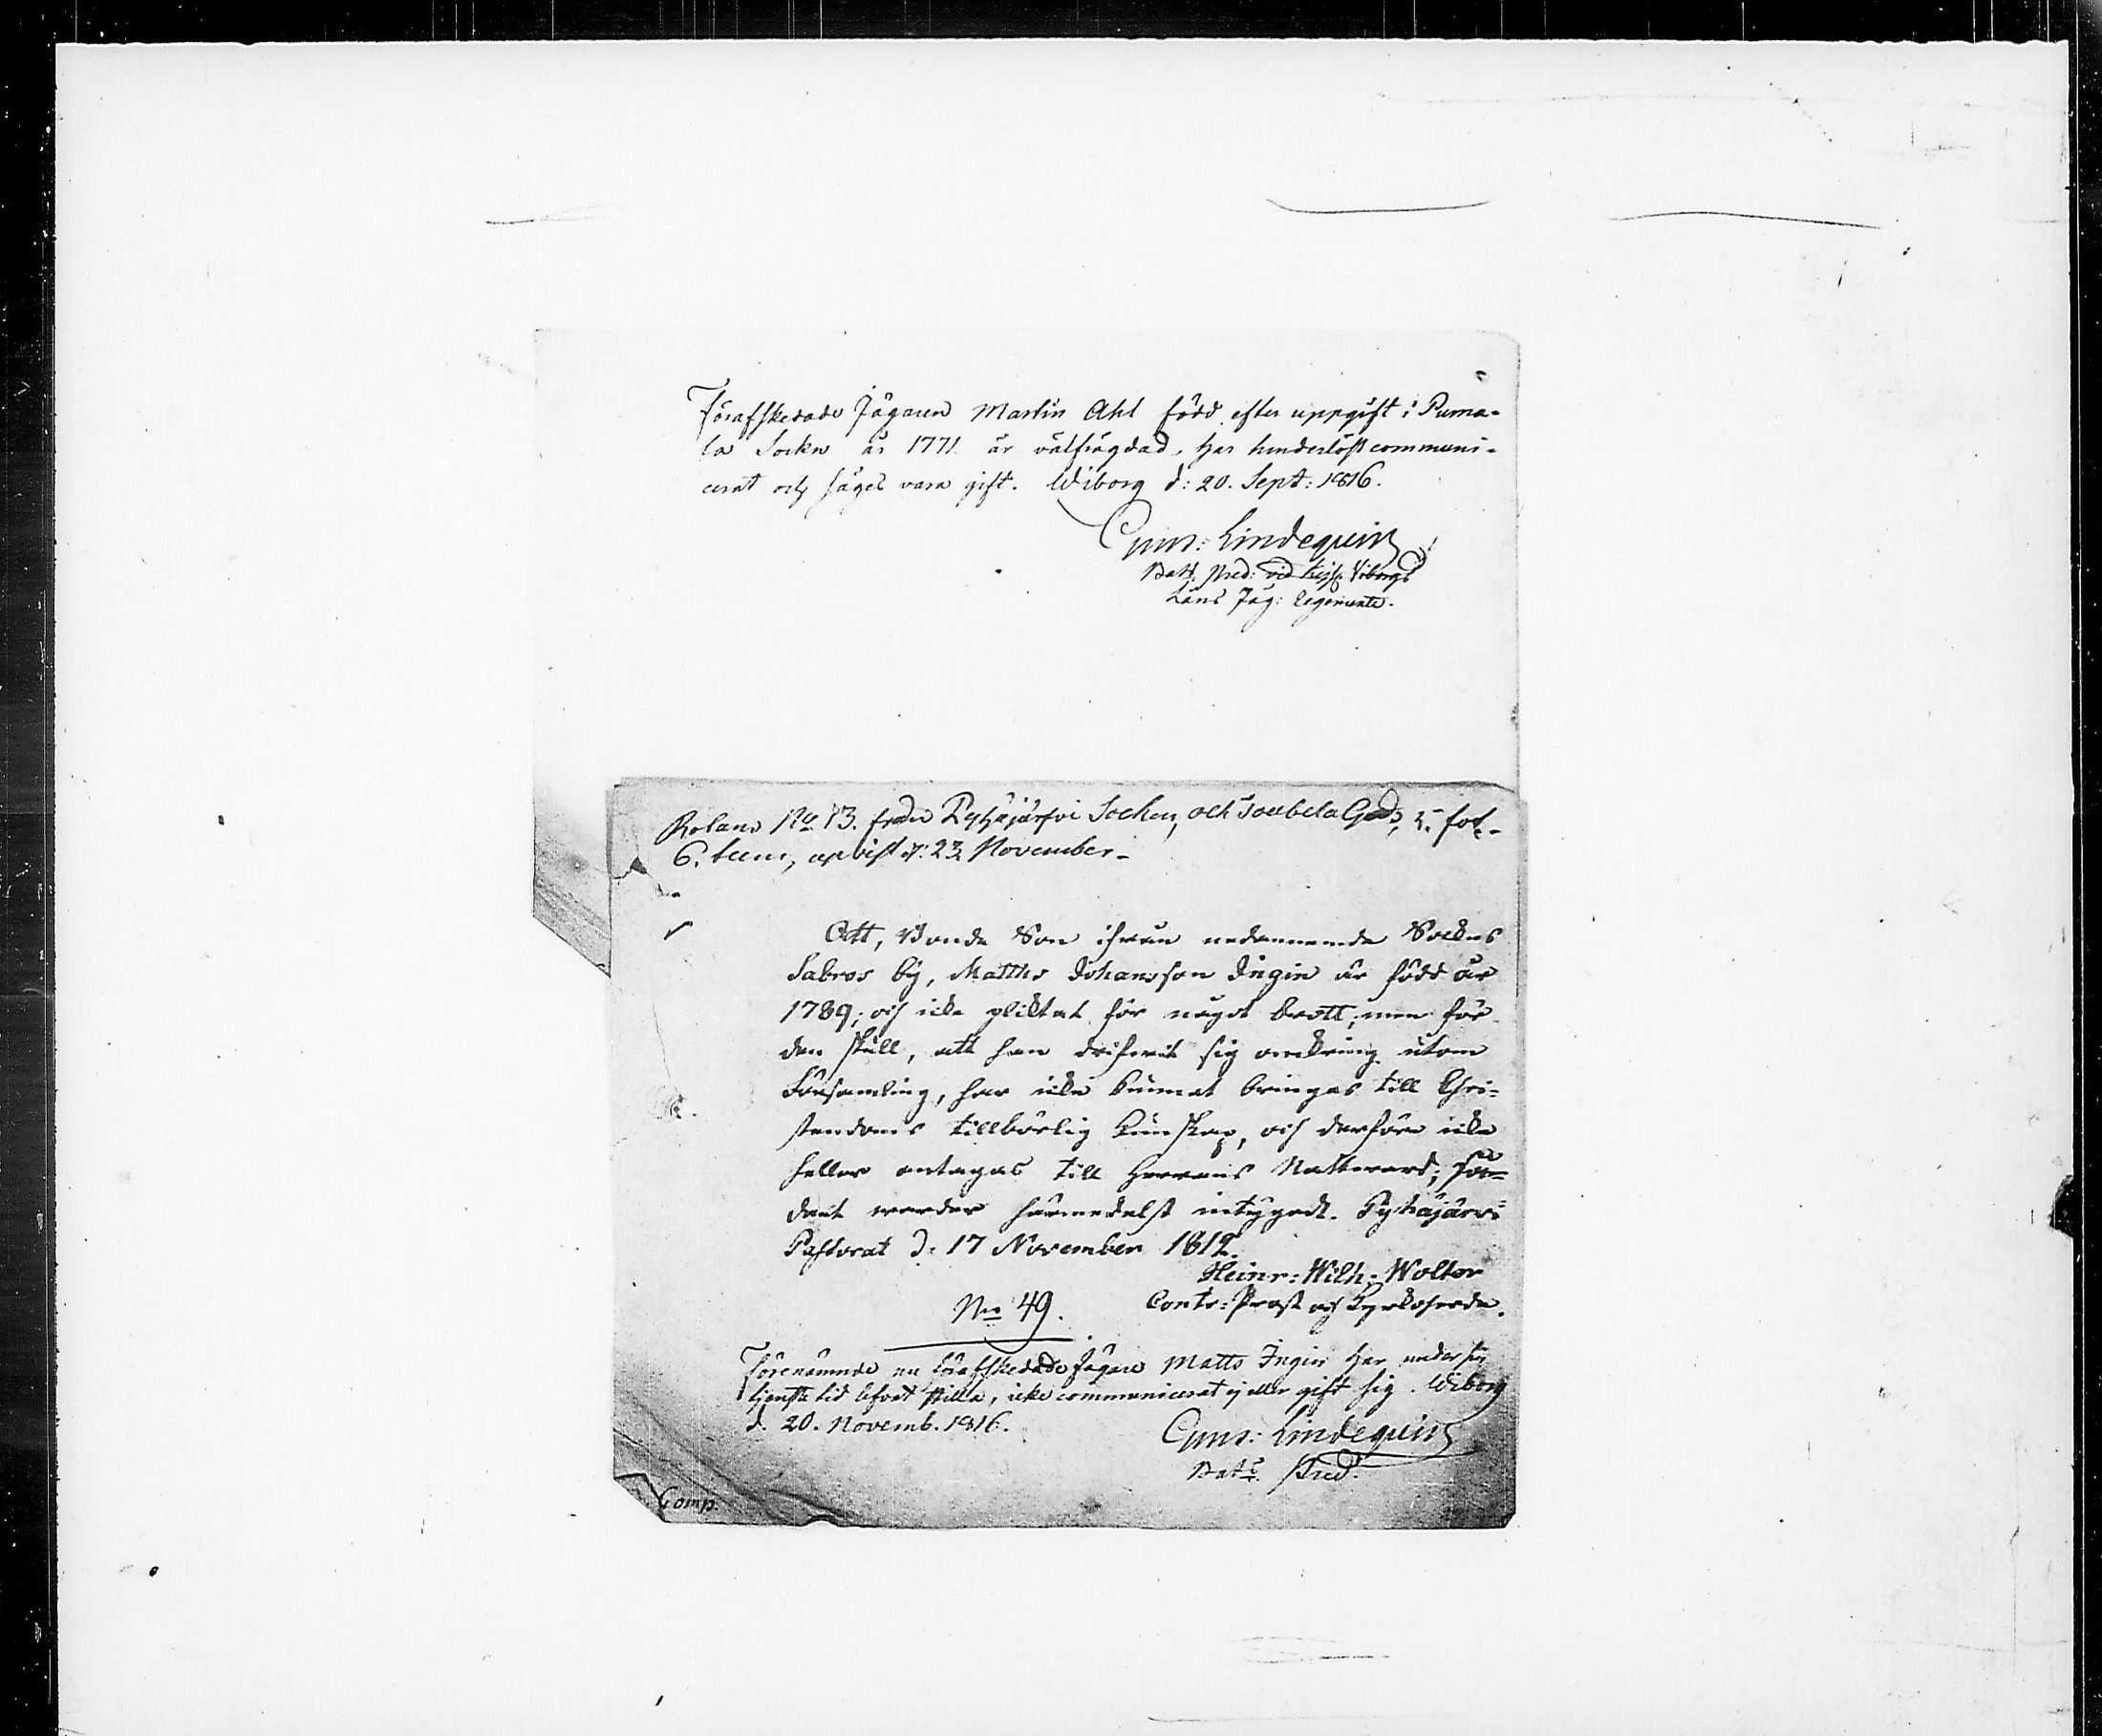 Förafskedade Jägaren Martin Ahl född efter uppgift i Puma-
la Sockn år 1771. är välfrägdad, har hinderlöst communi-
cerat och säges vara gift. Wiborg d: 20. Sept: 1816.
Lindequist
Batt. Pred: vid Kejs. Viborgs
Läns Jäg: Regemente.
Rolans No 73. från Pyhäjärfvi Socken, och Gods,
6. November_
Att, Bonde Son ifrån nedannemde Sockns
Sabros by, Matths Johansson Ingin är född år
1789; och icke pliktat för något brott; men för
den skull, att han drifvit sig omkring utom
Församling, har icke kunnat bringas till Chri=
stendoms tillbörlig kunskap, och derföre icke
heller antagas till Herrans Nattward; så=
dant warder härmedelst intygadt. Pyhäjärvi
Pastorat d: 17 November 1812.
Heinr: Wilh: Wolter
Contr: Prost och Kyrkoherde.
No 49.
Förenämnde nu förafskedade Jägare Matts Ingin har under sin
tjenste tid lefvat stilla, icke communicerat ej eller gift sig. Wiborg
d. 20. Novemb. 1816.
Lindequist
Bats Pred.
Comp.